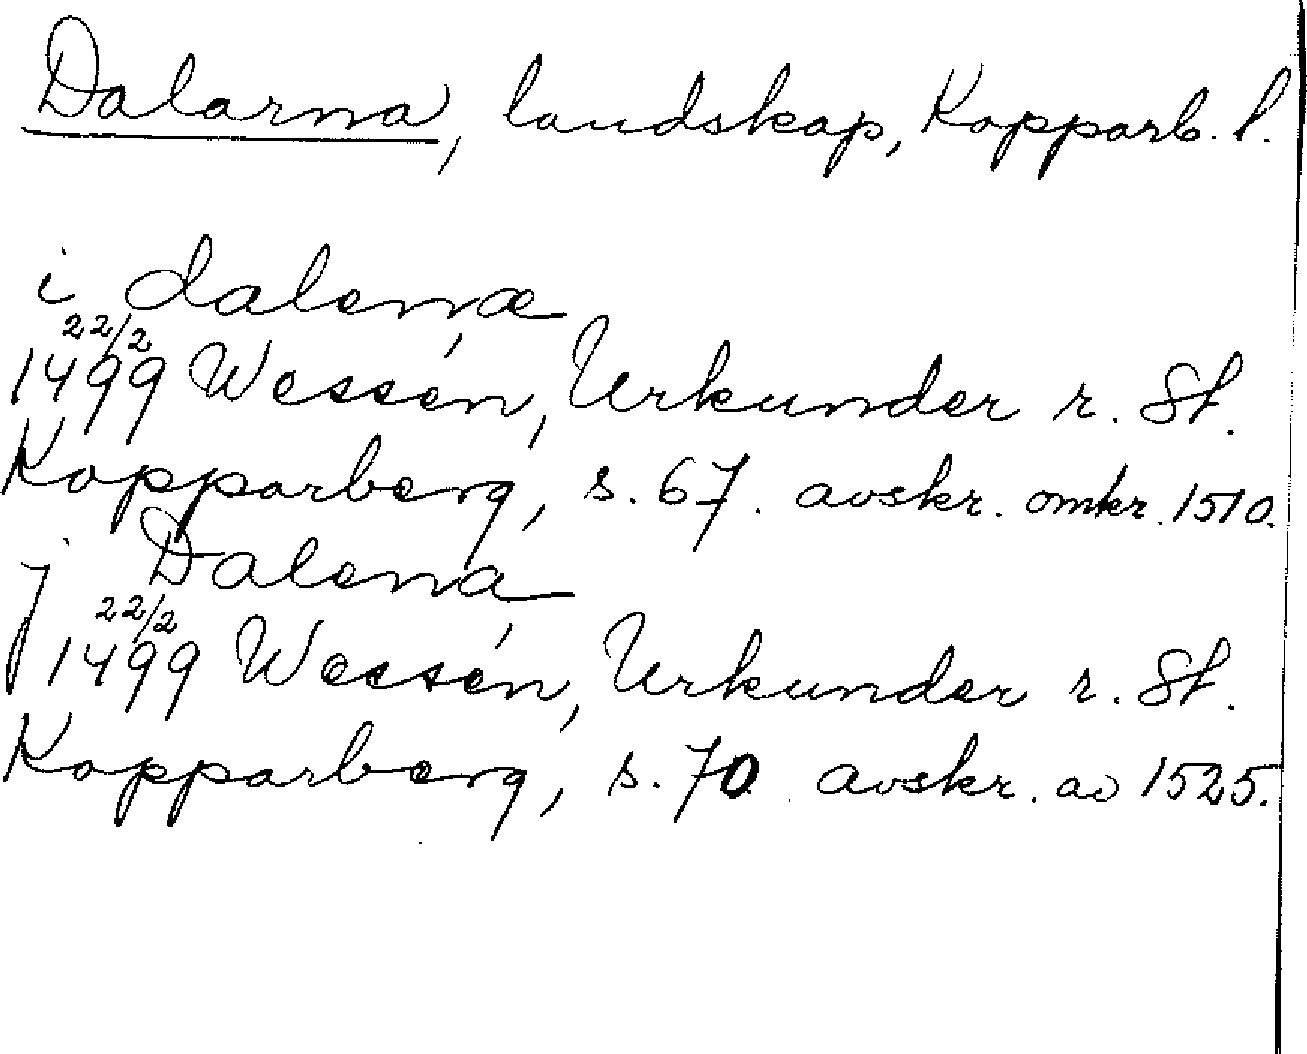 Dalarna, landskap, Kopparb. l.
i dalenæ
22/2
1499 Wessén, Urkunder r. St.
Kopparberg, s. 67. avskr. omkr. 1510.
j Dalena
22/2
1499 Wessén, Urkunder r. St.
Kopparberg, s. 70. avskr. av 1525.